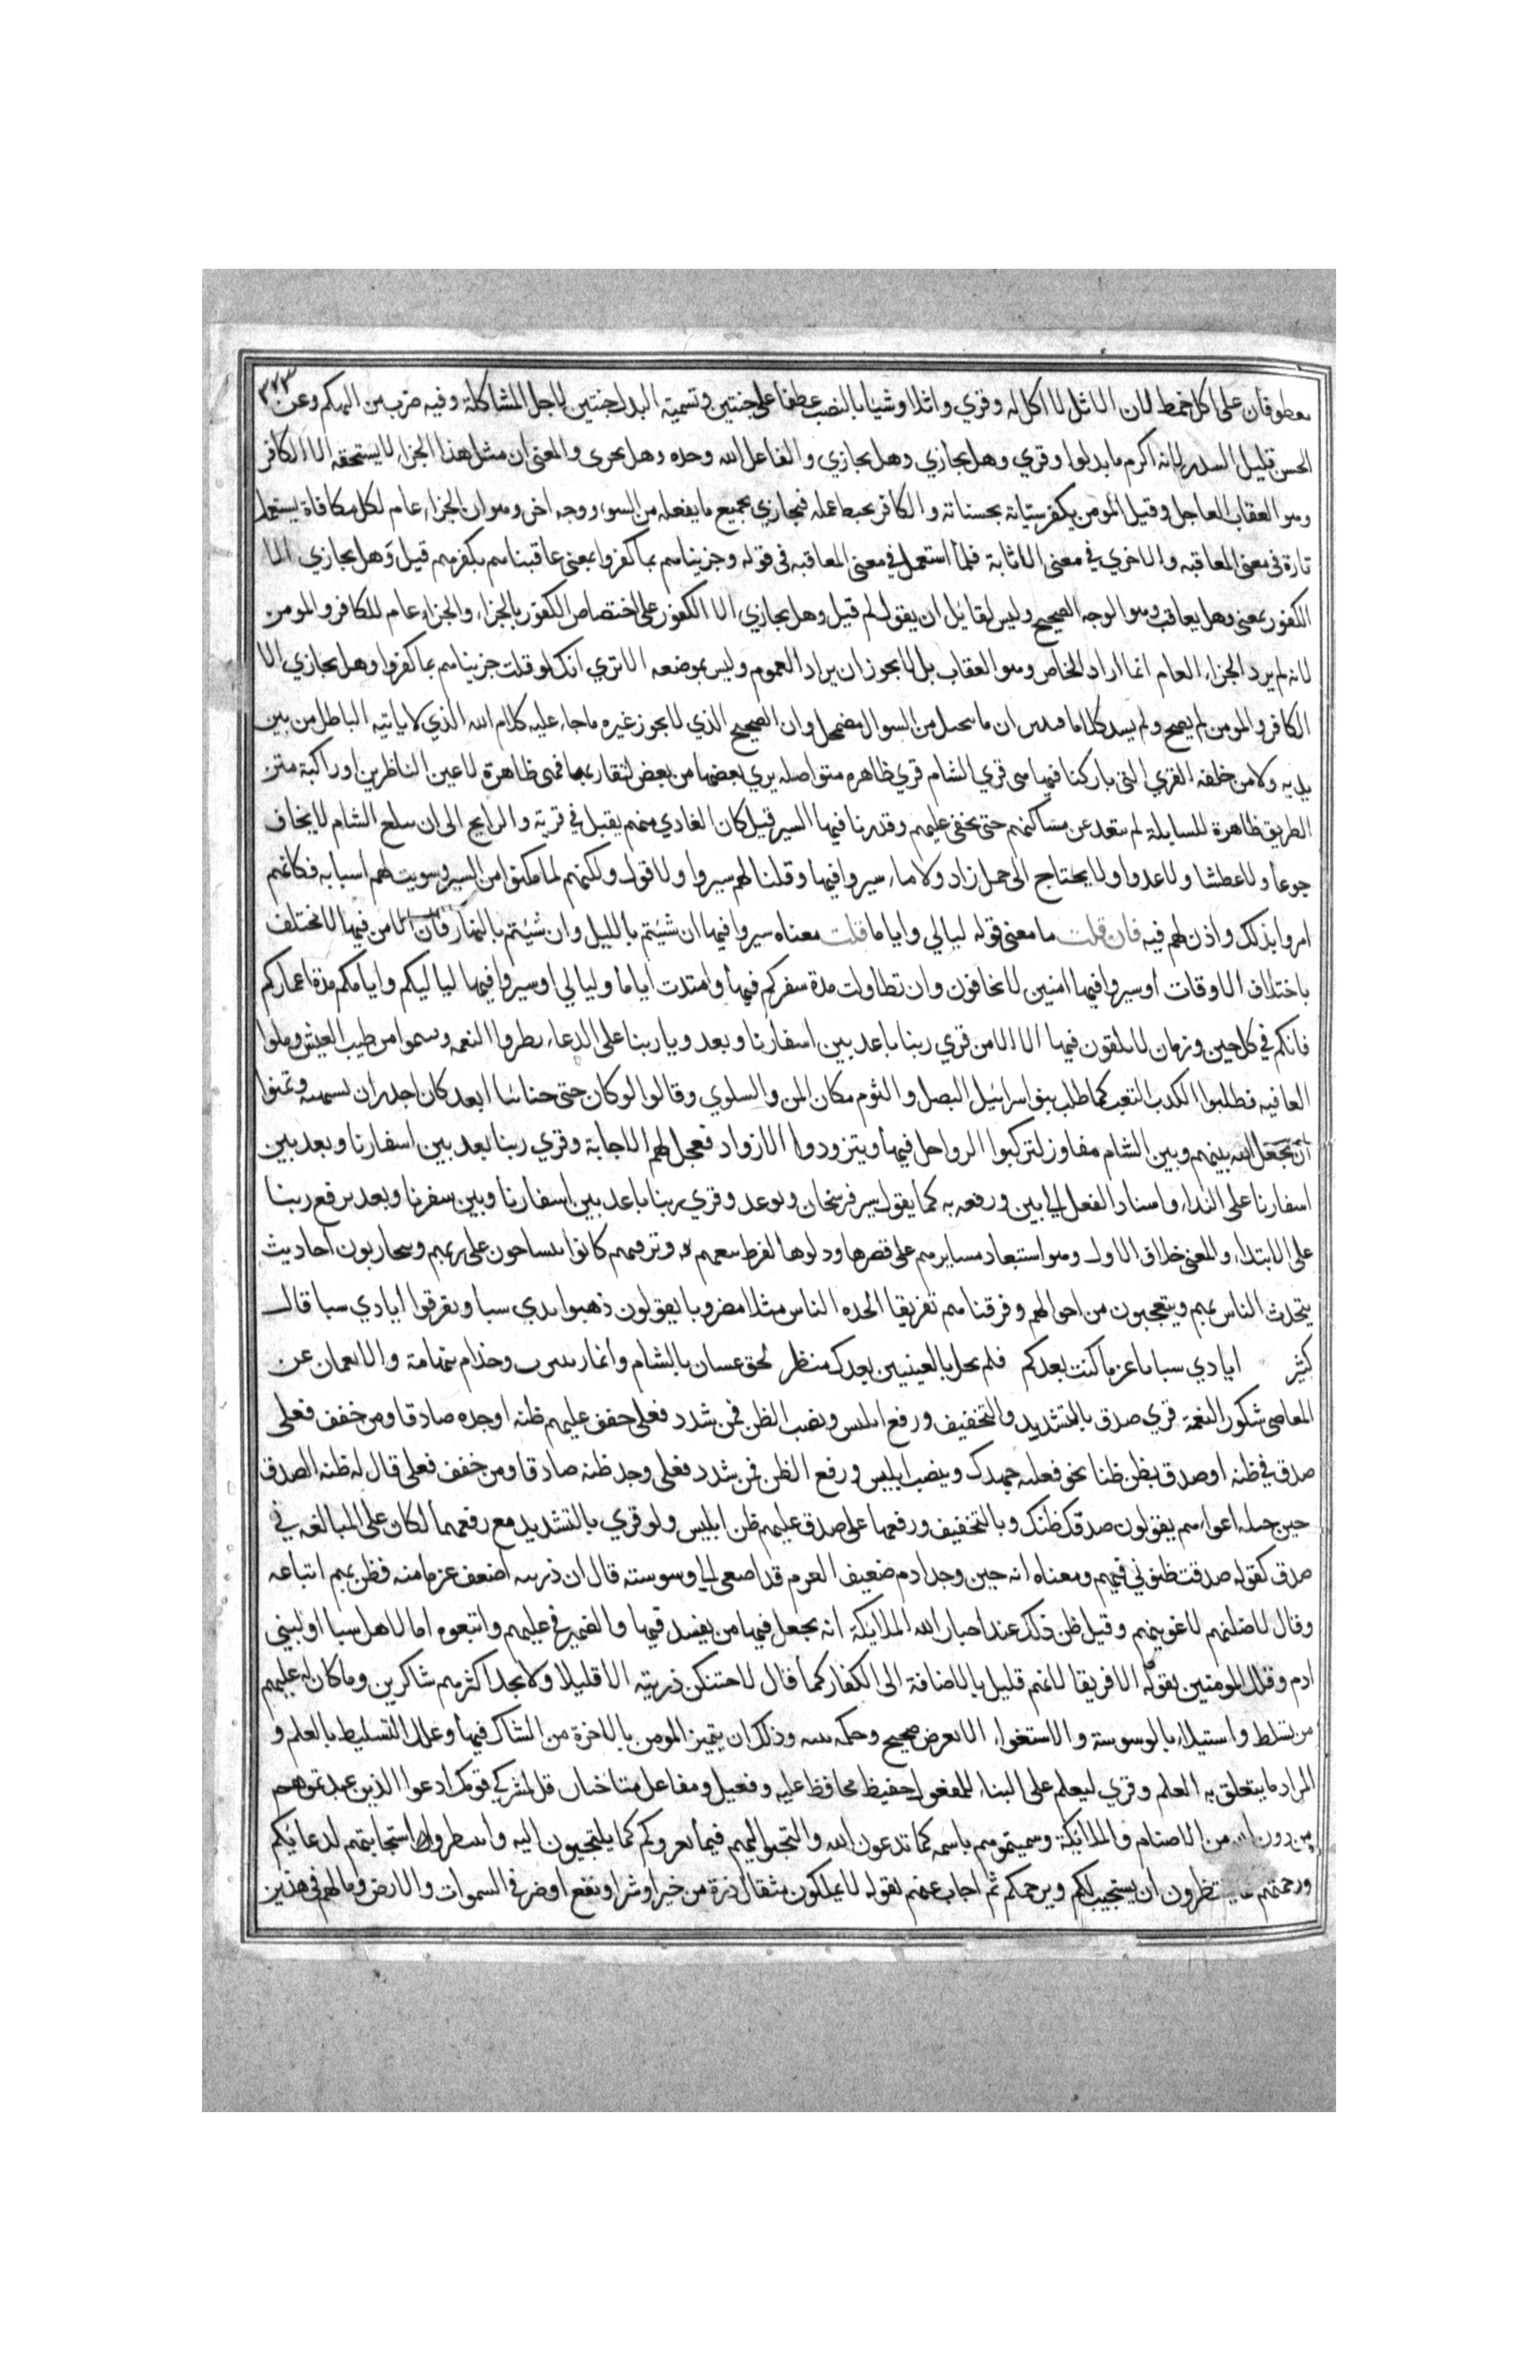 ٣٧٣
معطوفان على اكل خمط لان الاثل لا اكل له وقري واثلا وشيا بالنصب عطفا على جنتين وتسمية البدل جنتين لاجل المشاكلة وفيه ضرب من التهكم وعن
الحسن قليل السدر لانه اكرم ما بدلوا وقري وهل يجازي وهل يجازي والفاعل الله وحده وهل يجزى والمعنى ان مثل هذا الجزاء لا يستحقه الا الكافر
وهو العقاب العاجل وقيل المومن يكفر سيئاته بحسناته والكافر يحبط عمله فيجازي بجميع ما يفعله من السوء ووجه اخر وهو ان الجزاء عام لكل مكافاة يستعمل
تارة في معنى المعاقبه والاخري في معنى الاثابة فلما استعمل في معنى المعاقبه في قوله وجزيناهم بما كفروا بمعنى عاقبناهم بكفرهم قيل وهل يجازي الا
الكفور بمعنى وهل يعاقب وهو الوجه الصحيح وليس لقايل ان يقول لم قيل وهل يجازي الا الكفور على اختصاص الكفور بالجزاء والجزاء عام للكافر والمومن
لانه لم يرد الجزاء العام انما اراد الخاص وهو العقاب بل لا يجوز ان يراد العموم وليس بموضعه الا تري انك لو قلت جزيناهم بما كفروا وهل يجازي الا
الكافر والمومن لم يصح ولم يسد كلاما فتبين ان ما يتخيل من السوال مضمحل وان الصحيح الذي لا يجوز غيره ما جاء عليه كلام الله الذي لا ياتيه الباطل من بين
يديه ولا من خلفه القري التى باركنا فيها هى قري الشام قري ظاهره متواصله يري بعضها من بعض لتقاربها فهى ظاهرة لاعين الناظرين او راكبة متن
الطريق ظاهرة للسابلة لم تبعد عن مسالكهم حتى تخفى عليهم وقدرنا فيها السير قيل كان الغادي منهم يقيل في قرية والرايح الى ان يبلغ الشام لا يخاف
جوعا ولا عطشا ولا عدوا ولا يحتاج الى حمل زاد ولا ماء سيروا فيها وقلنا لهم سيروا ولا قول ولكنهم لما مكنوا من السير وسويت لهم اسبابه فكانهم
امروا بذلك واذن لهم فيه فان قلت ما معنى قوله ليالي واياما قلت معناه سيروا فيها ان شيتم بالليل وان شيتم بالنهار فان الامن فيها لا يختلف
باختلاف الاوقات او سيروا فيها امنين لا تخافون وان تطاولت مدة سفركم فيها وامتدت اياما وليالي او سيروا فيها لياليكم وايامكم مدة اعماركم
فانكم في كل حين وزمان لا تلقون فيها الا الامن قري ربنا باعد بين اسفارنا وبعد ويا ربنا على الدعاء بطروا النعمه وسموا من طيب العيش وملوا
العافيه فطلبوا الكد والتعب كما طلب بنو اسرائيل البصل والثوم مكان المن والسلوي وقالوا لو كان جنى جناننا ابعد كان اجدر ان نشتهيه وتمنوا
ان يجعل الله بينهم وبين الشام مفاوز لتركبوا الرواحل فيها ويتزودوا الازواد فعجل لهم الاجابة وقري ربنا بعد بين اسفارنا وبعد بين
اسفارنا على النداء واسناد الفعل الى بين ورفعه به كما يقول سير فرسخان وبوعد وقري ربنا باعد بين اسفارنا وبين سفرنا وبعد برفع ربنا
على الابتداء والمعنى خلاف الاول وهو استبعاد مسايرهم على قصرها ودنوها لفرط تنعمهم وترفههم كانوا يتشاحون على ربهم ويتحازنون احاديث
يتحدث الناس بهم ويتعجبون من احوالهم وفرقناهم تفريقا اتخذه الناس مثلا مضروبا يقولون ذهبوا ايدي سبا وتفرقوا ايادي سبا قال
كثير ايادي سبا يا عز ما كنت بعدكم فلم يحل بالعينين بعدك منظر لحق غسان بالشام وانمار بيثرب وجذام بتهامة والازد بعمان عن
المعاصى شكور النعمة قري صدق بالتشديد والتخفيف ورفع ابليس ونصب الظن فمن شدد فعلى حقق عليهم ظنه او وجده صادقا ومن خفف فعلى
صدق في ظنه او صدق يظن ظنا نحو فعلته جهدك وبنصب ابليس ورفع الظن فمن شدد فعلى وجد ظنه صادقا ومن خفف فعلى قال له ظنه الصدق
حين خيله اغواءهم يقولون صدقك ظنك وبالتخفيف ورفعها على صدق عليهم ظن ابليس ولو قري بالتشديد مع رفعهما لكان على المبالغه في
صدق كقوله صدقت ظنوني فيهم ومعناه انه حين وجد ادم ضعيف العزم قد اصغى الى وسوسته قال ان ذريته اضعف عزما منه فظن بهم اتباعه
وقال لاضلنهم لاغوينهم وقيل ظن ذلك عند اخبار الله الملائكة انه يجعل فيها من يفسد فيها والضمير في عليهم واتبعوه اما لاهل سبا او لبني
ادم وقلل المومنين بقوله الا فريقا لانهم قليل بالاضافة الى الكفار كما قال لاحتنكن ذريته الا قليلا ولا تجد اكثرهم شاكرين وما كان له عليهم
من تسلط واستيلاء بالوسوسة والاستغواء الا لغرض صحيح وحكمه بينه وذلك ان يتميز المومن بالاخرة من الشاك فيها وعلل التسليط بالعلم و
المراد ما يتعلق به العلم وقري ليعلم على البناء للمفعول حفيظ محافظ عليه وفعيل ومفاعل متاخيان قل لمشركي قومك ادعوا الذين عبدتموهم
من دون الله من الاصنام والملائكة وسميتموهم باسمه كما تدعون الله والتجئوا اليهم فيما يعروكم كما يلتجيون اليه وانتظروا استجابتهم لدعائكم
ورحمتهم كما ينتظرون ان يستجيب لكم ويرحمكم ثم اجاب عنهم بقوله لا يملكون مثقال ذرة من خير او شر او نفع او ضر في السموات والارض وما لهم في هذين